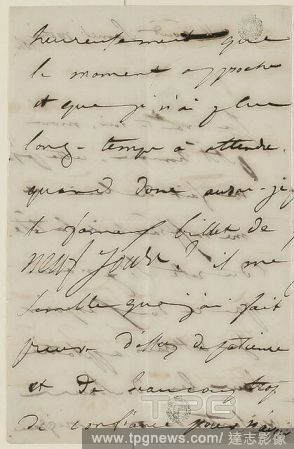 heureusement que
le moment approche
et que je n'ai plus
long-temps à attendre.
quand donc aurai-je
le fameux billet de
neuf jours? il me
semble que j'ai fait
preuve d'assez de patience
et de beaucoup trop
de confiance pour
TPG
www.tpgnews.com/達志影像